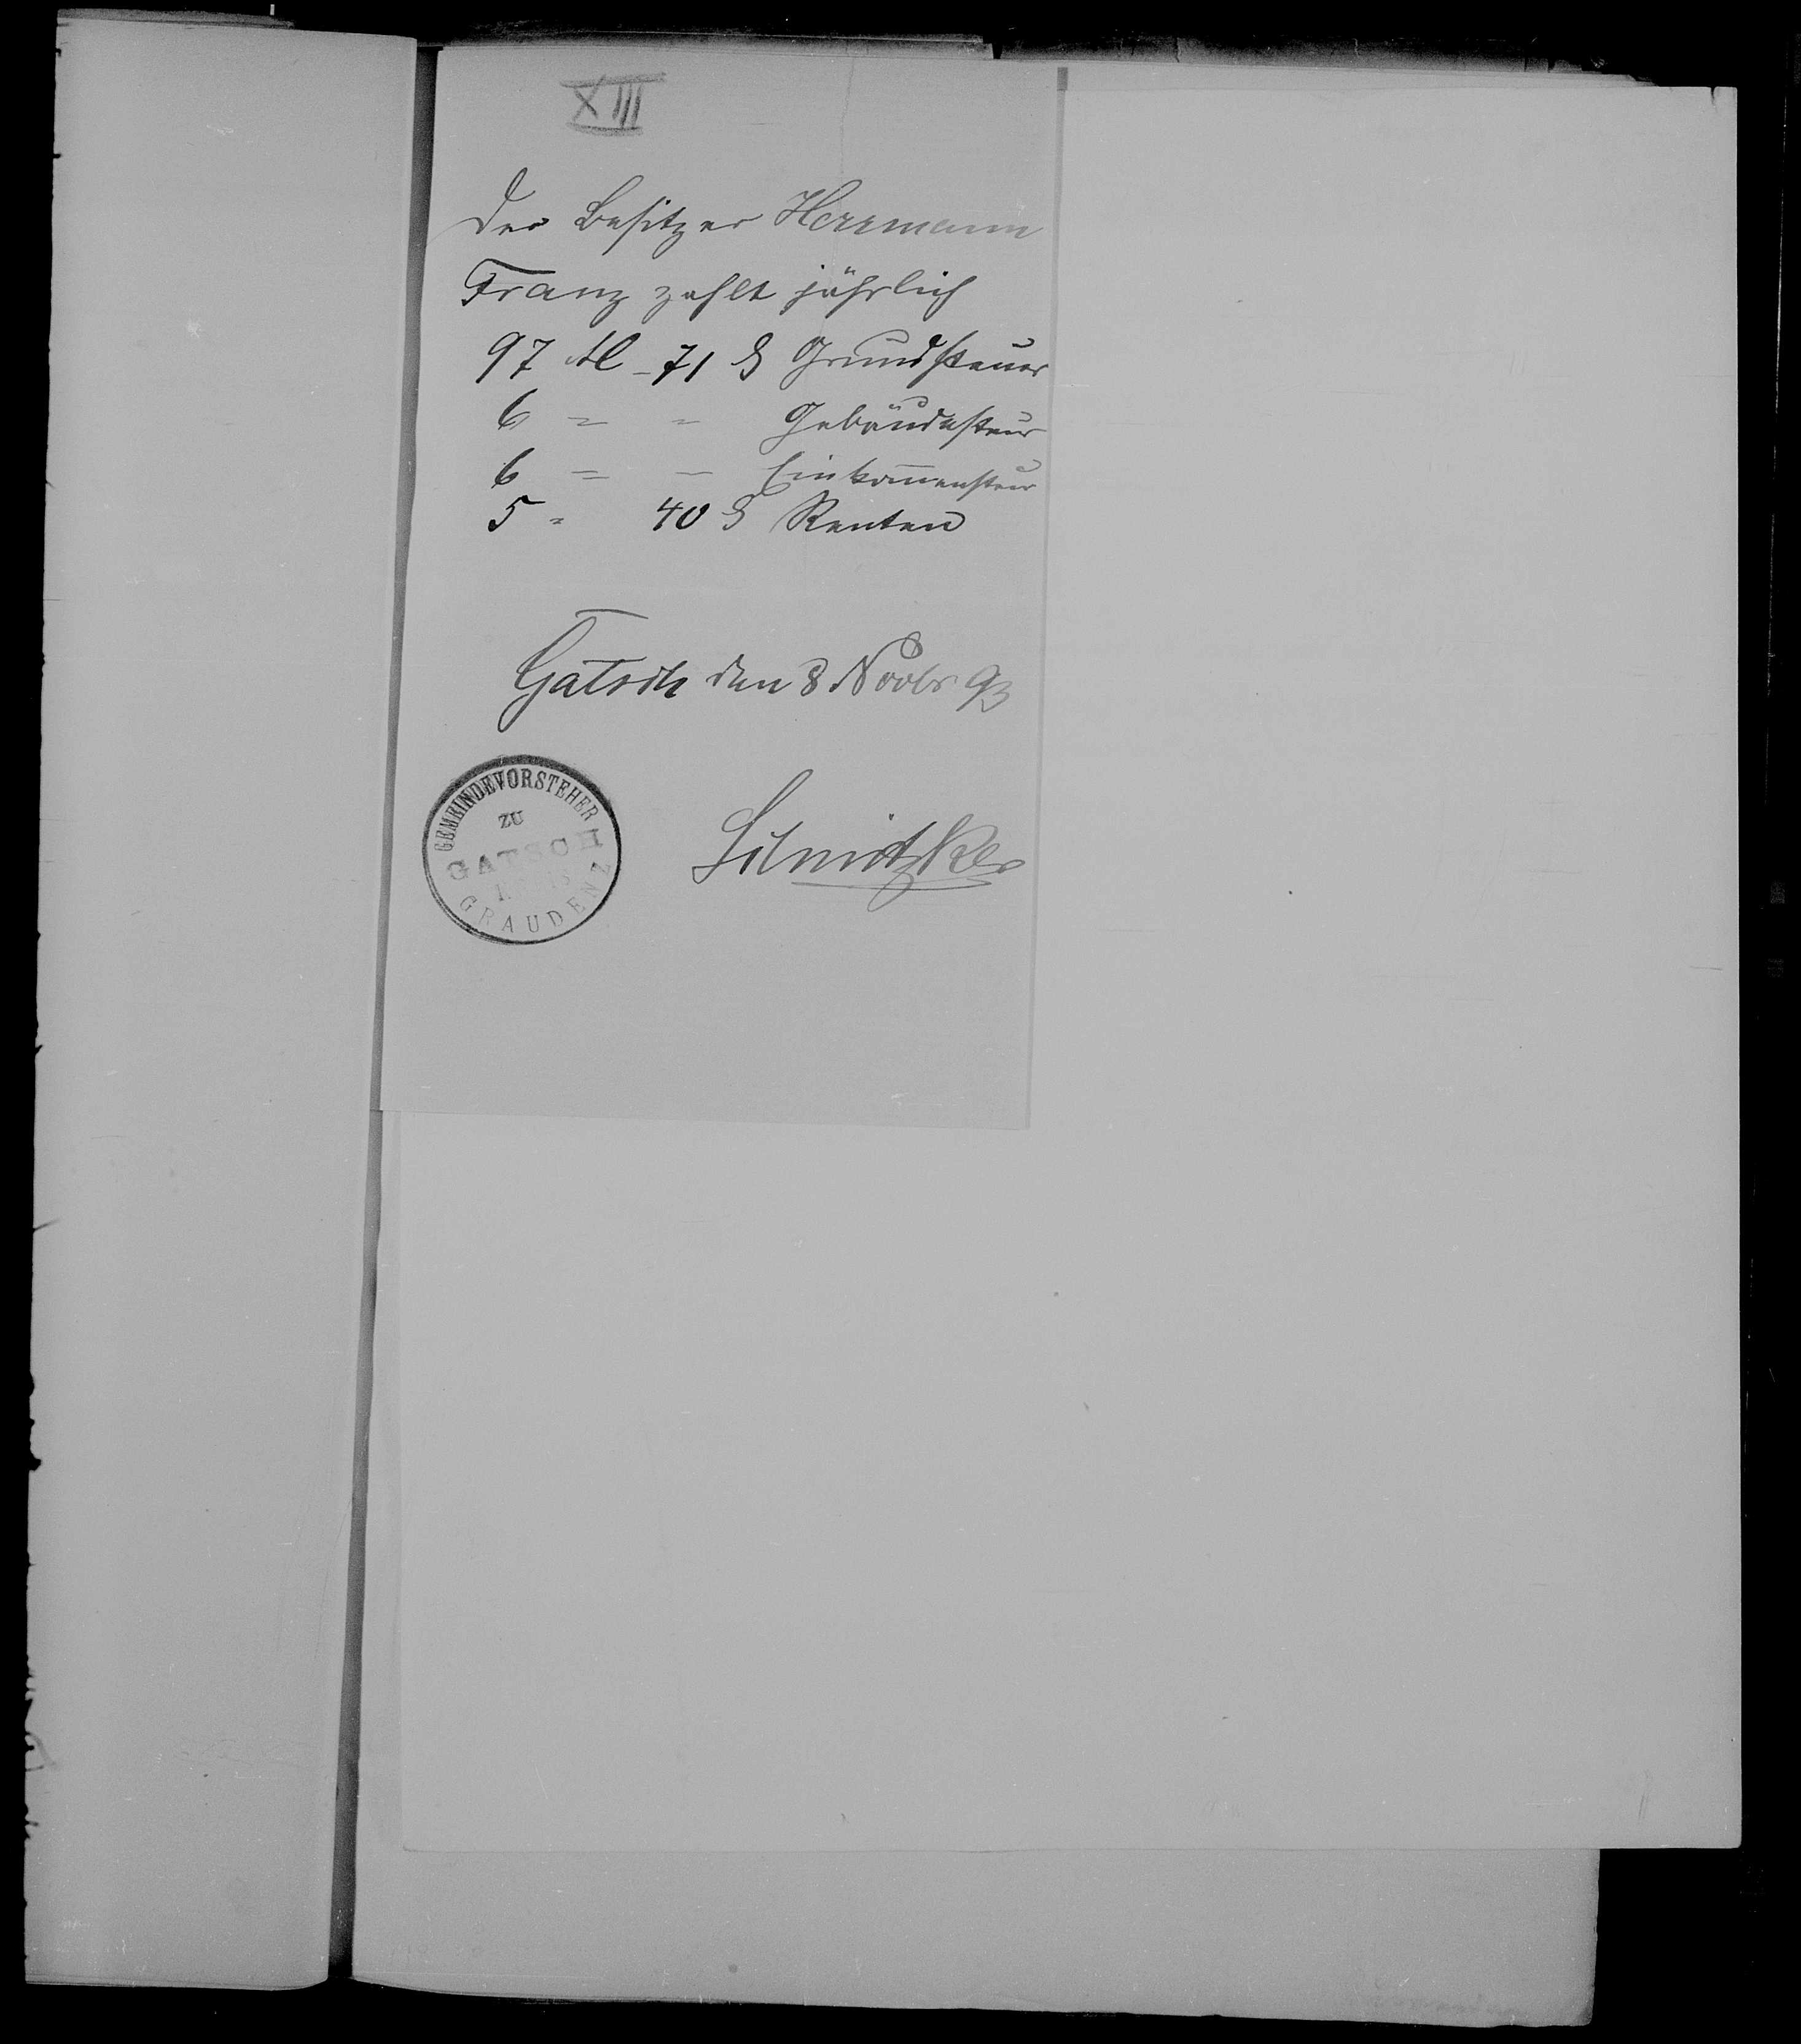 XIII
Der Besitzer Herrmann
Franz zahlt jährlich
97 M - 71 ₰ Grundsteuer
6 = = Gebäudesteur
6 = - Einkom̄ensteur
5 = 40 ₰ Renten
Gatsch den 8 Novbr 93
GEMEINDEVORSTEHER
ZU
GATSCH
KREIS
GRAUDENZ